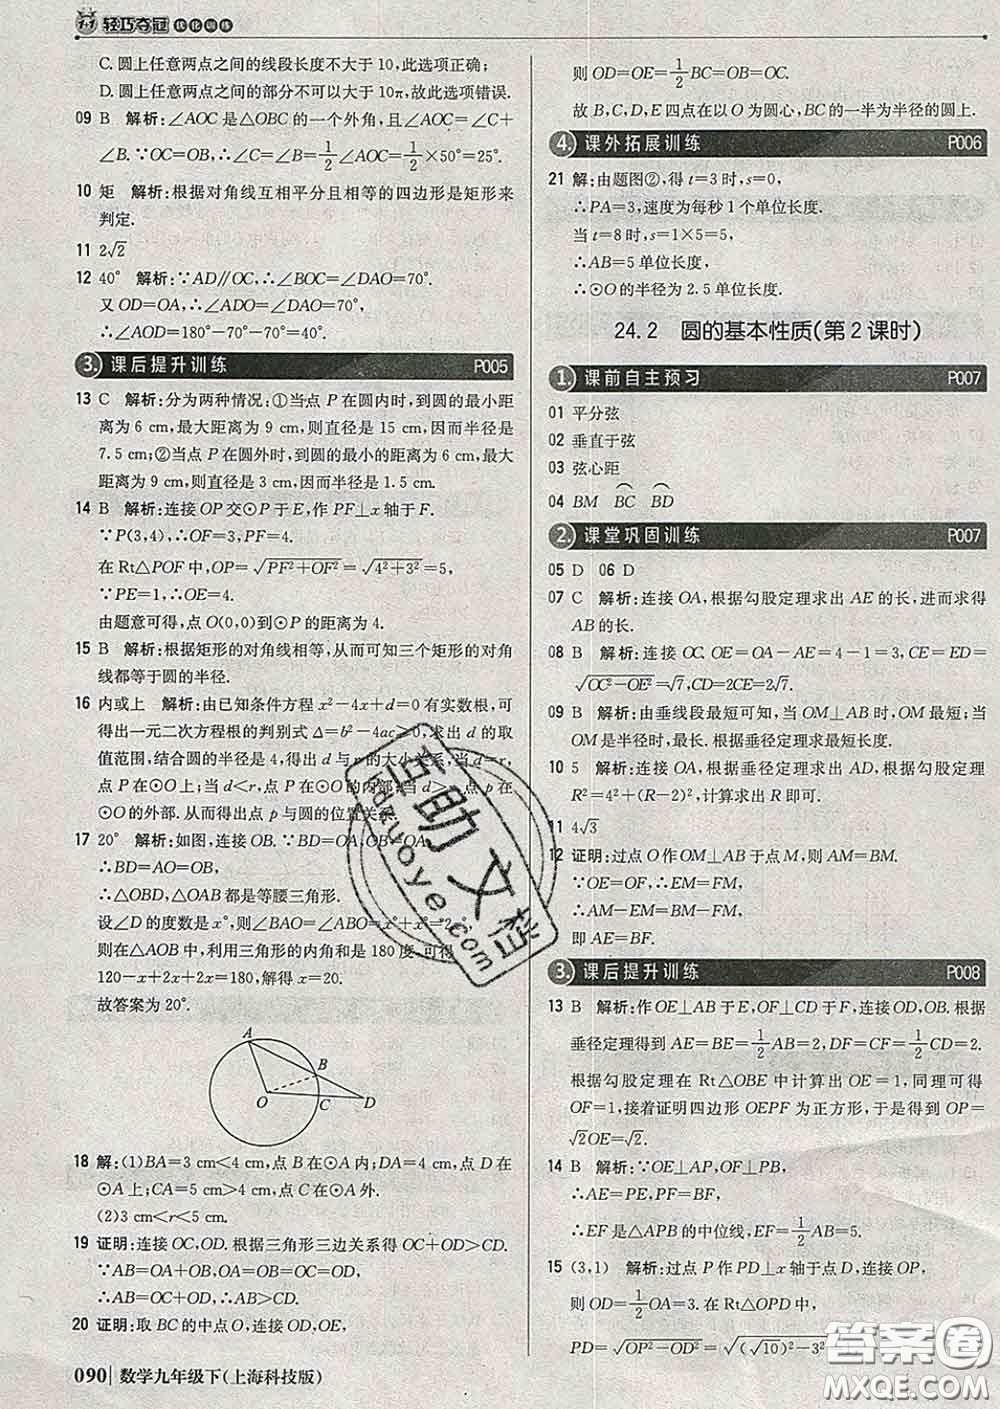 1+1 轻巧夺冠 优化训练
C. 圆上任意两点之间的线段长度不大于 10,此选项正确;
D. 圆上任意两点之间的部分不可以大于 10π,故此选项错误.
09 B 解析:∠AOC 是△OBC 的一个外角,且∠AOC=∠C+
∠B. ∵OC=OB,∴∠C=∠B=1/2∠AOC=1/2×50°=25°.
10 矩 解析:根据对角线互相平分且相等的四边形是矩形来
判定.
11 2√2
12 40° 解析:∵AD∥OC,∴∠BOC=∠DAO=70°.
又 OD=OA,∴∠ADO=∠DAO=70°,
∴∠AOD=180°-70°-70°=40°.
3. 课后提升训练 P005
13 C 解析:分为两种情况:①当点 P 在圆内时,到圆的最小距
离为 6 cm,最大距离为 9 cm,则直径是 15 cm,因而半径是
7.5 cm;②当点 P 在圆外时,到圆的最小的距离为 6 cm,最
大距离为 9 cm,则直径是 3 cm,因而半径是 1.5 cm.
14 B 解析:连接 OP 交⊙P 于 E,作 PF⊥x 轴于 F.
∵P(3,4),∴OF=3,PF=4.
在 Rt△POF 中,OP=√(PF²+OF²)=√(4²+3²)=5,
∵PE=1,∴OE=4.
由题意可得,点 O(0,0)到⊙P 的距离为 4.
15 B 解析:根据矩形的对角线相等,从而可知三个矩形的对角
线都等于圆的半径.
16 内或上 解析:由已知条件方程 x²-4x+d=0 有实数根,可
得出一元二次方程根的判别式 Δ=b²-4ac≥0,求出 d 的取
值范围,结合圆的半径是 4,得出 d 与 r 的大小关系,当 d=r,
点 P 在⊙O 上;当 d<r,点 P 在⊙O 的内部,当 d> 点 p 在
⊙O 的外部. 从而得出点 p 与圆的位置关系.
17 20° 解析:如图,连接 OB. ∵BD=OA,OB=OA,
∴BD=AO=OB,
∴△OBD,△OAB 都是等腰三角形.
设∠D 的度数是 x°,则∠BAO=∠ABO=x°+x°=2x°,
则在△AOB 中,利用三角形的内角和是 180 度,可得
120-x+2x+2x=180,解得 x=20.
故答案为 20°.
A
B
O
C
D
18 解:(1)BA=3 cm<4 cm,点 B 在⊙A 内;DA=4 cm,点 D 在
⊙A 上;CA=5 cm>4 cm,点 C 在⊙A 外.
(2)3 cm<r<5 cm.
19 证明:连接 OC,OD. 根据三角形三边关系得 OC+OD>CD.
∵AB=OA+OB,OA=OB=OC=OD,
∴AB=OC+OD,∴AB>CD.
20 证明:取 BC 的中点 O,连接 OD,OE,
090 数学九年级下(上海科技版)
则 OD=OE=1/2BC=OB=OC.
故 B,C,D,E 四点在以 O 为圆心,BC 的一半为半径的圆上.
4. 课外拓展训练 P006
21 解:由题图②,得 t=3 时,s=0,
∴PA=3,速度为每秒 1 个单位长度.
当 t=8 时,s=1×5=5,
∴AB=5 单位长度,
∴⊙O 的半径为 2.5 单位长度.
24.2 圆的基本性质(第 2 课时)
1. 课前自主预习 P007
01 平分弦
02 垂直于弦
03 弦心距
04 BM ⌒BC ⌒BD
2. 课堂巩固训练 P007
05 D 06 D
07 C 解析:连接 OA,根据勾股定理求出 AE 的长,进而求得
AB 的长.
08 B 解析:连接 OC,OE=OA-AE=4-1=3,CE=ED=
√(OC²-OE²)=√7,CD=2CE=2√7.
09 B 解析:由垂线段最短可知,当 OM⊥AB 时,OM 最短;当
OM 是半径时,最长. 根据垂径定理求最短长度.
10 5 解析:连接 OA,根据垂径定理求出 AD,根据勾股定理
R²=4²+(R-2)²,计算求出 R 即可.
11 4√3
12 证明:过点 O 作 OM⊥AB 于点 M,则 AM=BM.
∵OE=OF,∴EM=FM,
∴AM-EM=BM-FM,
即 AE=BF.
3. 课后提升训练 P008
13 B 解析:作 OE⊥AB 于 E,OF⊥CD 于 F,连接 OD,OB. 根据
垂径定理得到 AE=BE=1/2AB=2,DF=CF=1/2CD=2.
根据勾股定理在 Rt△OBE 中计算出 OE=1,同理可得
OF=1,接着证明四边形 OEPF 为正方形,于是得到 OP=
√2OE=√2.
14 B 解析:∵OE⊥AP,OF⊥PB,
∴AE=PE,PF=BF.
∴EF 是△APB 的中位线,EF=1/2AB=5.
15 (3,1) 解析:过点 P 作 PD⊥x 轴于点 D,连接 OP,
则 OD=1/2OA=3. 在 Rt△OPD 中,
PD=√(OP²-OD²)=√((√10)²-3²)
答案圈
MXQE.COM
zuoyedaan.com